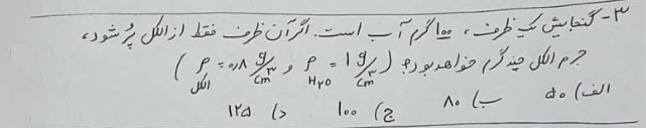 ۳- گنجایش یک ظرف، ۱۰۰ گرم آب است. اگر آن ظرف فقط از الکل پُر شود،
جرم الکل چند گرم خواهد بود؟ (ρ H₂O = ۱ g/cm³ و ρ الکل = ۰٫۸ g/cm³)
الف) ۵۰ ب) ۸۰ ج) ۱۰۰ د) ۱۲۵